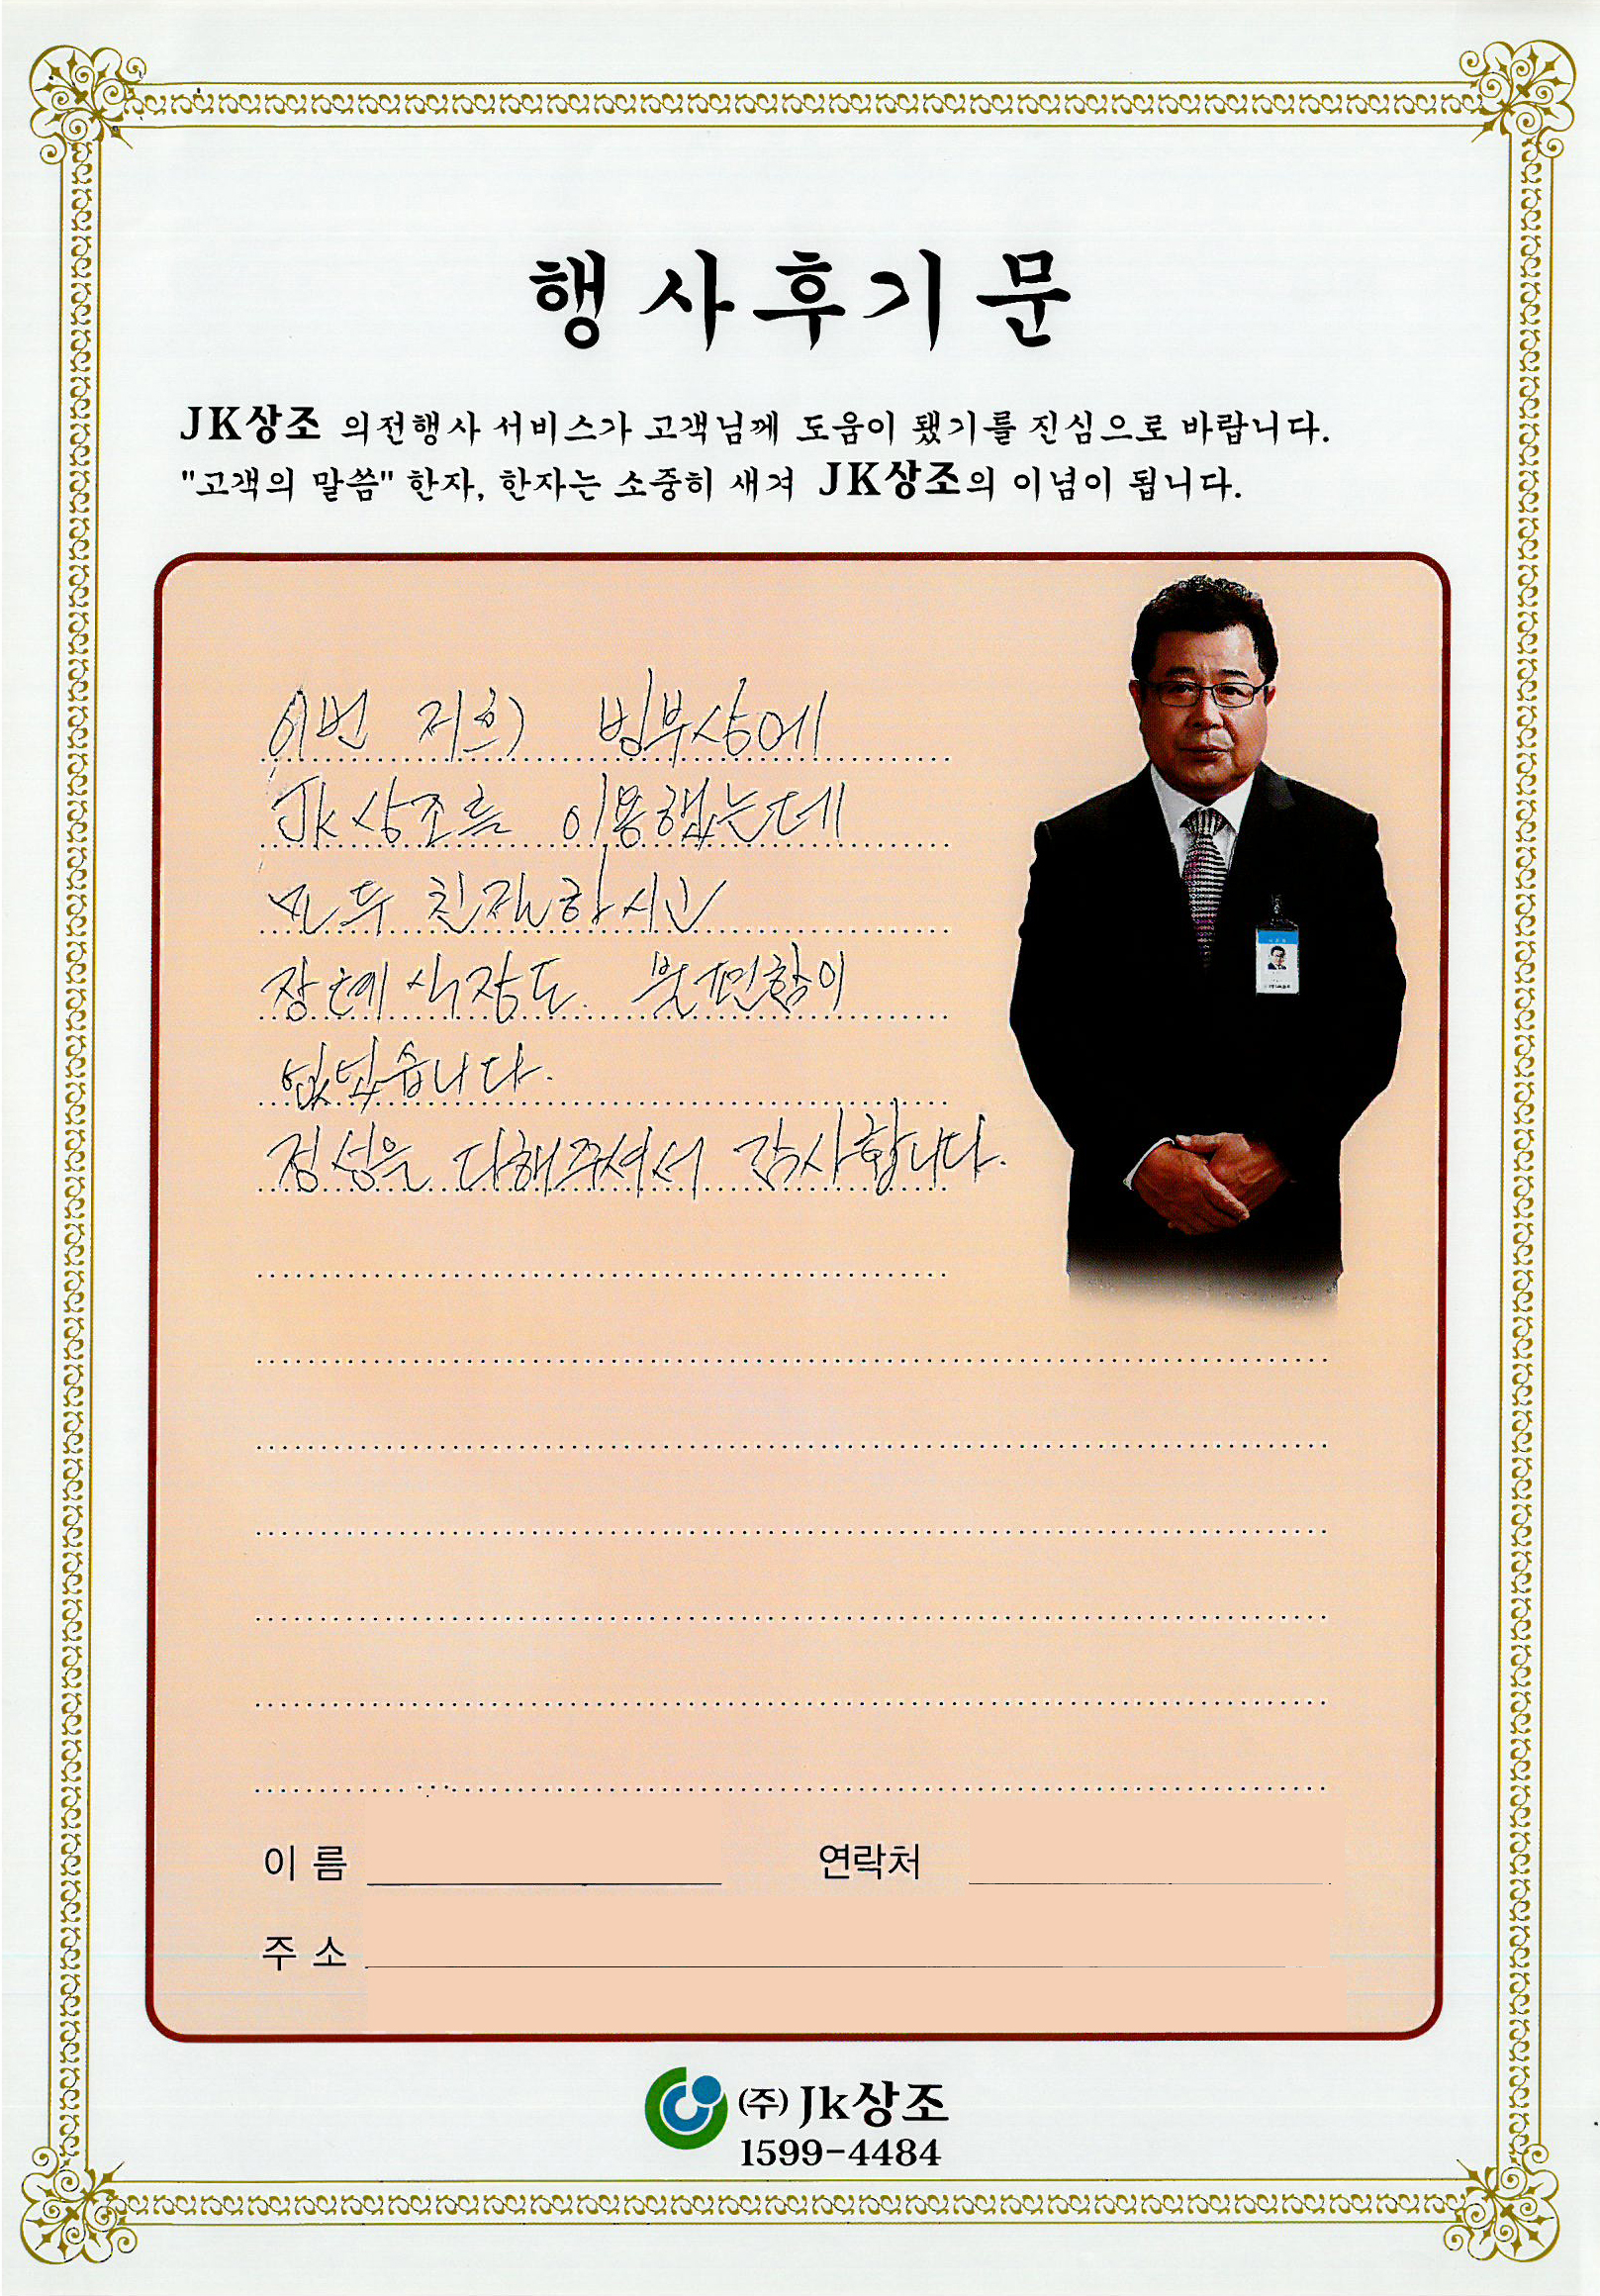 행사후기문
JK상조 의전행사 서비스가 고객님께 도움이 됐기를 진심으로 바랍니다.
"고객의 말씀" 한자, 한자는 소중히 새겨 JK상조의 이념이 됩니다.
이번 저희 빙부상에
Jk상조를 이용했는데
모두 친절하시고
장례식장도 불편함이
없었습니다.
정성을 다해주셔서 감사합니다.
이 름
연락처
주 소
(주) Jk상조
1599-4484